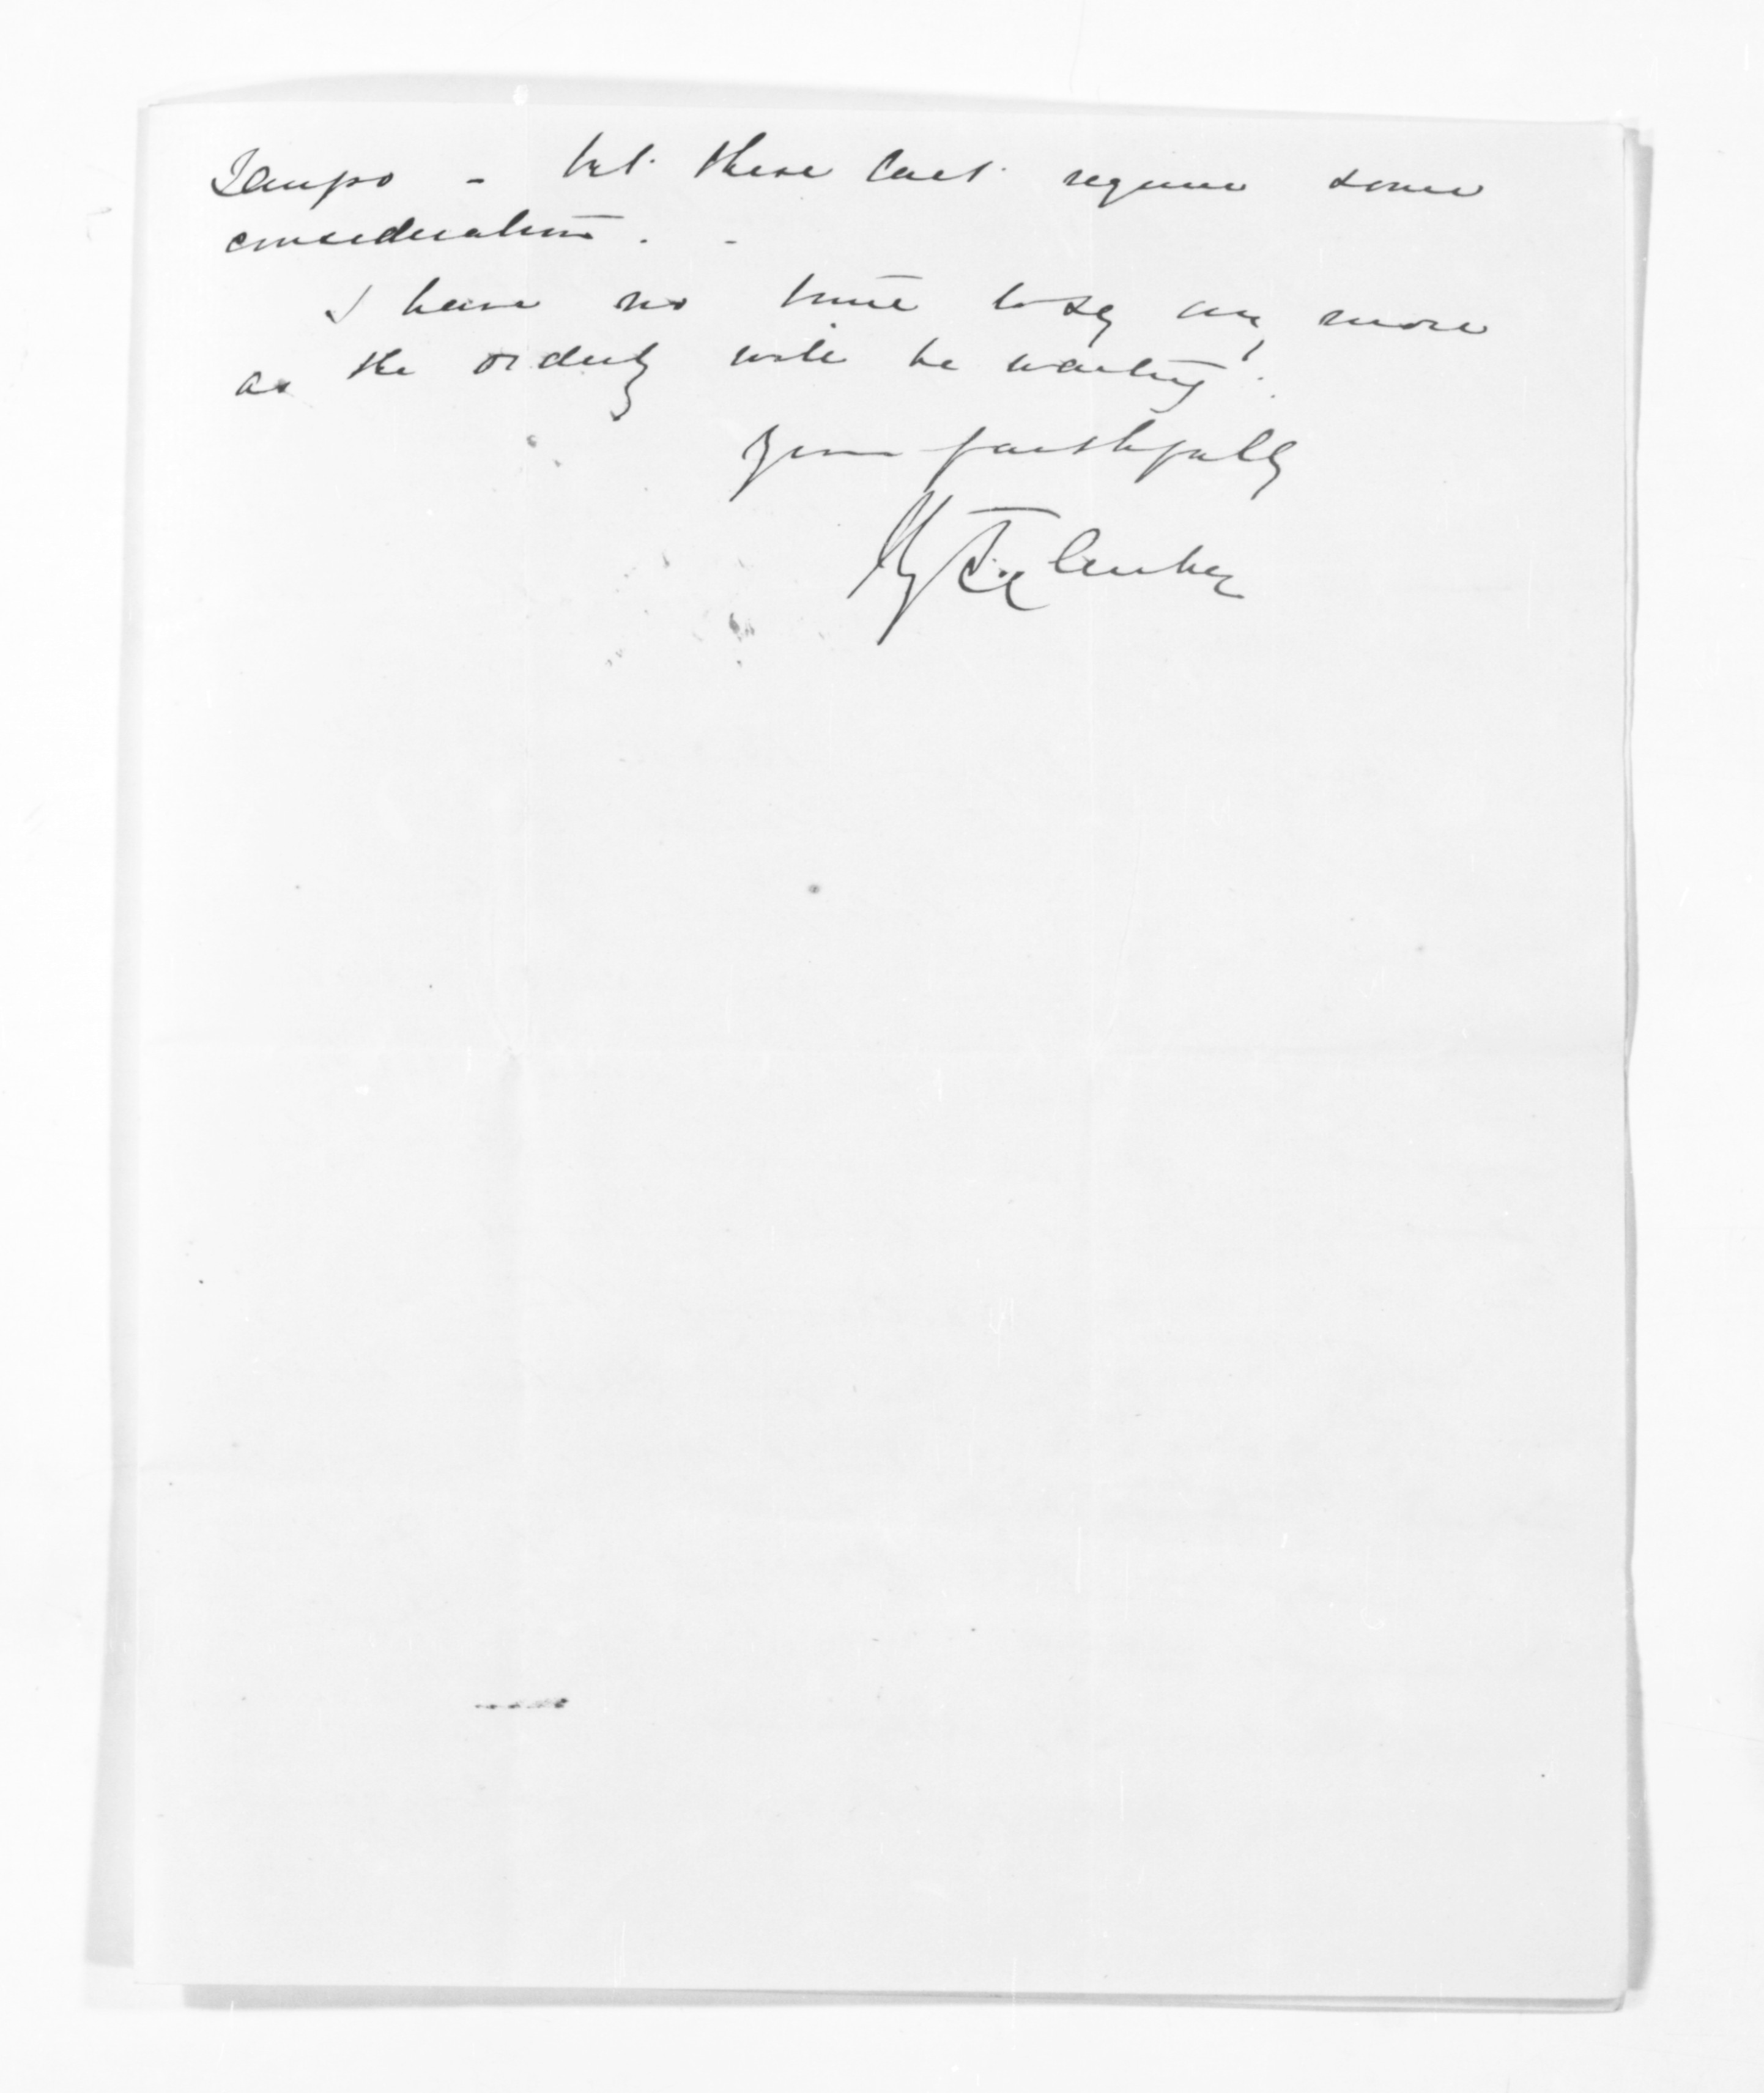 Taupo - but these last require some
consideration. -
I have no time to say any more
as the orderly will be waiting.
Yours faithfully
H T Clarke